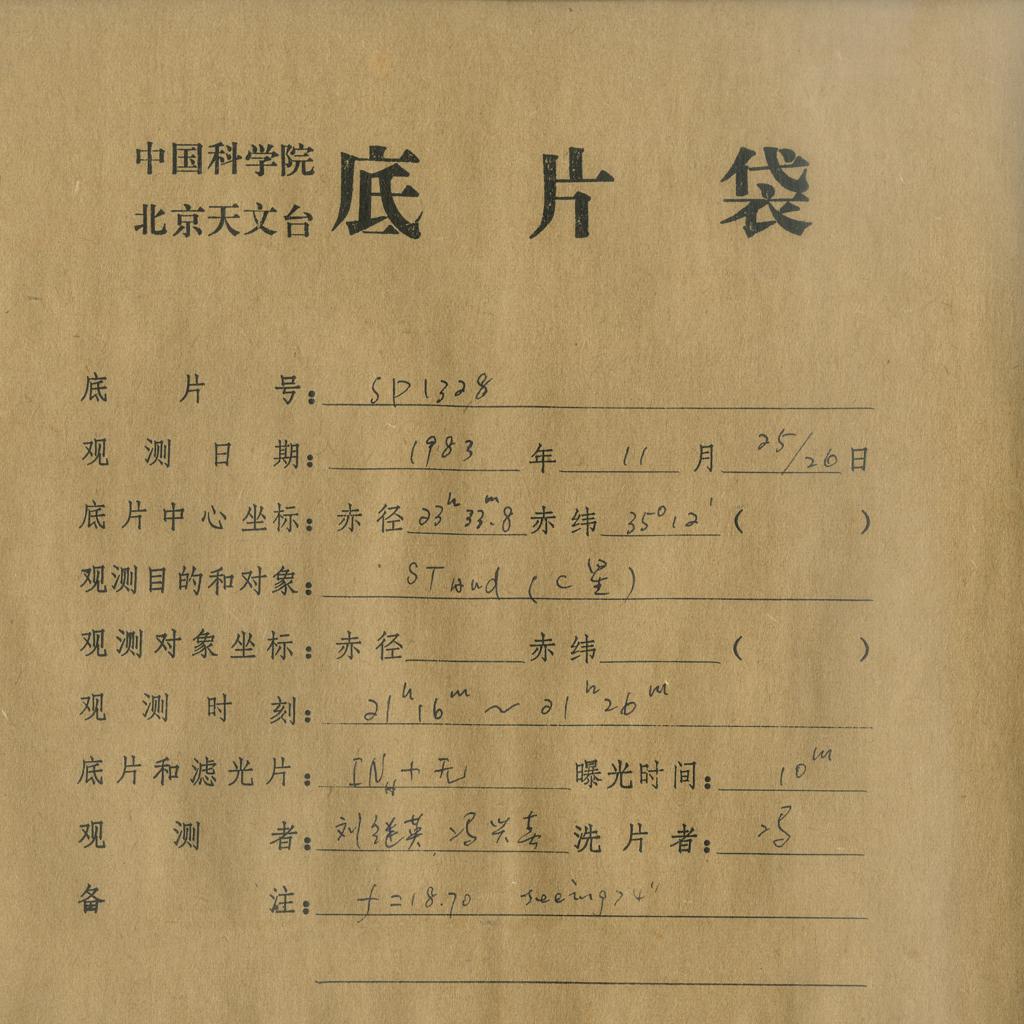 中国科学院
北京天文台
底片袋
底片号：SP1328
观测日期：1983年11月25/26日
底片中心坐标：赤径23ʰ33ᵐ.8赤纬35°12′（ ）
观测目的和对象：STand (C星)
观测对象坐标：赤径 赤纬 （ ）
观测时刻：21ʰ16ᵐ～21ʰ26ᵐ
底片和滤光片：IN_H+无 曝光时间：10ᵐ
观测者：刘继英 冯兴春 洗片者：冯
备注：f=18.70 seeing>4"